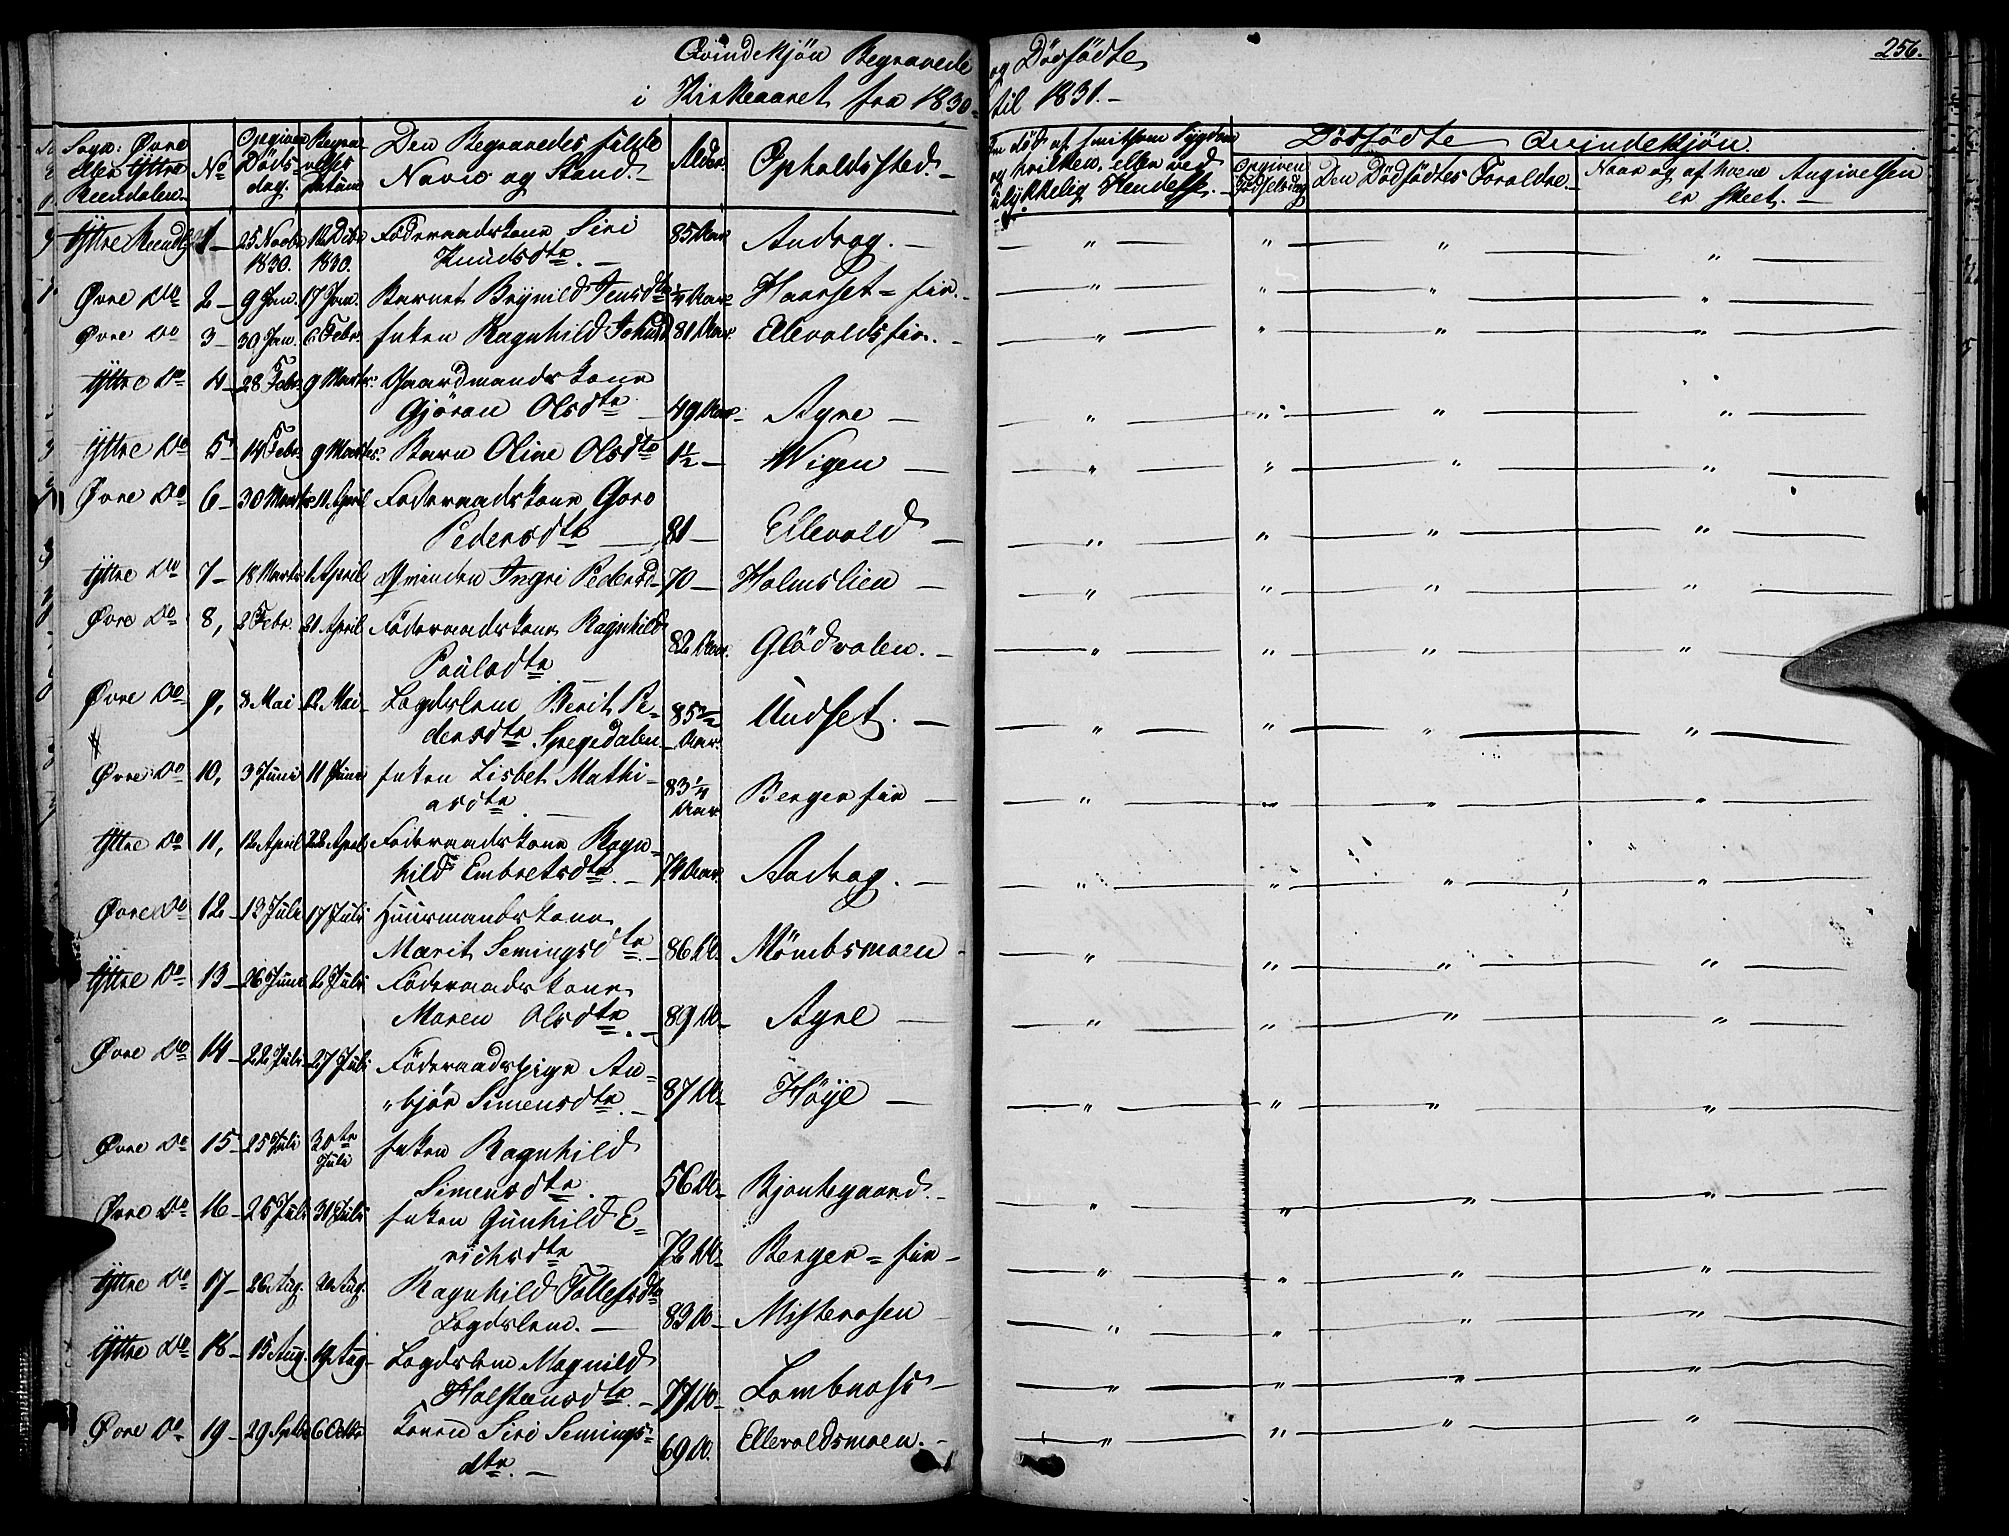 Qvindekjøn Begravede og Dødfødte
i Kirkeaaret fra 1830 til 1831.
256.
Sogn: Øvre eller Yttre Reendalen
No
Opgiven Døds dag.
Begravelses Datum
Den Begravedes fulde Navn og Stand.
Alder.
Opholdssted.
Om død af smitsom Sygdom og hvilken, eller ved ulykkelig Hendelse.
Dødfødte Qvindekjøn.
Opgiven Fødselsdag
Den Dødfødtes Forældre.
Naar og af hvem Angivelsen er skeet.
Yttre Reendl 1 25 Novbr 1830. 12 Decbr 1830. Föderaadskone Siri Knudsdtr. 85 Aar Andrag.
Øvre Do 2 9 Jan. 17 Jan. Barnet Brynild Jensdtr 1/4 Aar Haarset-eir.
Øvre Do 3 30 Jan. 6 Febr. Enken Ragnhild Johnsd 81 Aar. Ellevoldseir.
Yttre Do 4 28 Febr. 9 Marts. Gaardmandskone Gjøran Olsdtr 49 Aar. Agre
Yttre Do 5 14 Febr. 9 Marts. Barn Oline Olsdtr 1½ Wigen
Øvre Do 6 30 Marts 11 April Föderaadskone Goro Pedersdtr 81 Ellevold
Yttre Do 7 18 Marts 1 April Qvinden Ingri Pedersd 70 Holmslien
Øvre Do 8, 2 Febr. 21 April Föderaadskone Ragnhild Paulsdtr 82 Aar. Glödvolen.
Øvre Do 9, 8 Mai 12 Mai Legdslem Berit Pedersdtr. Spegedalen 85 Aar. Undset.
Øvre Do 10, 3 Juni 11 Juni Enken Lisbet Mathiasdtr 83 1/4 Aar Berger eir
Yttre Do 11, 12 April 22 April Föderaadskone Ragnhild Embretsdtr. 74 Aar. Andrag.
Øvre Do 12 13 Juli 17 Juli Huusmandskone Marit Semingsdtr 86 Do. Mömbsmoen
Yttre Do 13 26 Juni 2 Juli Föderaadskone Maren Olsdtr. 89 Do Agre
Øvre Do 14 22 Juli 27 Juli Föderaadspige Anbjör Simensdtr. 87 Do Höye
Øvre Do 15 25 Juli 30te Juli Enken Ragnhild Simensdtr. 56 Do Bjontegaard.
Øvre Do 16 25 Juli 31 Juli Enken Gunhild Erichsdtr 72 Do Berger-eir
Yttre Do 17 Aug. Aug. Ragnhild Tollefsdtr Legdslem. 83 Do Misterosen
Yttre Do 18 15 Aug. 19 Aug. Legdslem Magnild Halstensdtr. 77 Do Lombnæs
Øvre Do 19 29 Septbr 6 Octbr Konen Siri Semingsdtr. 69 Do. Ellevoldsmoen.